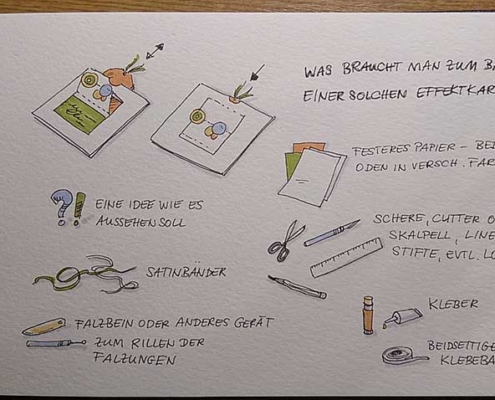 WAS BRAUCHT MAN ZUM
EINER SOLCHEN EFFEKTKAR
FESTERES PAPIER –
ODEN IN VERSCH. FAR
EINE IDEE WIE ES
AUSSEHEN SOLL
SCHERE, CUTTER O
SKALPELL, LINE
STIFTE, EVTL. LO
SATINBÄNDER
KLEBER
FALZBEIN ODER ANDERES GERÄT
ZUM RILLEN DER
FALZUNGEN
BEIDSEITIGE
KLEBEBA